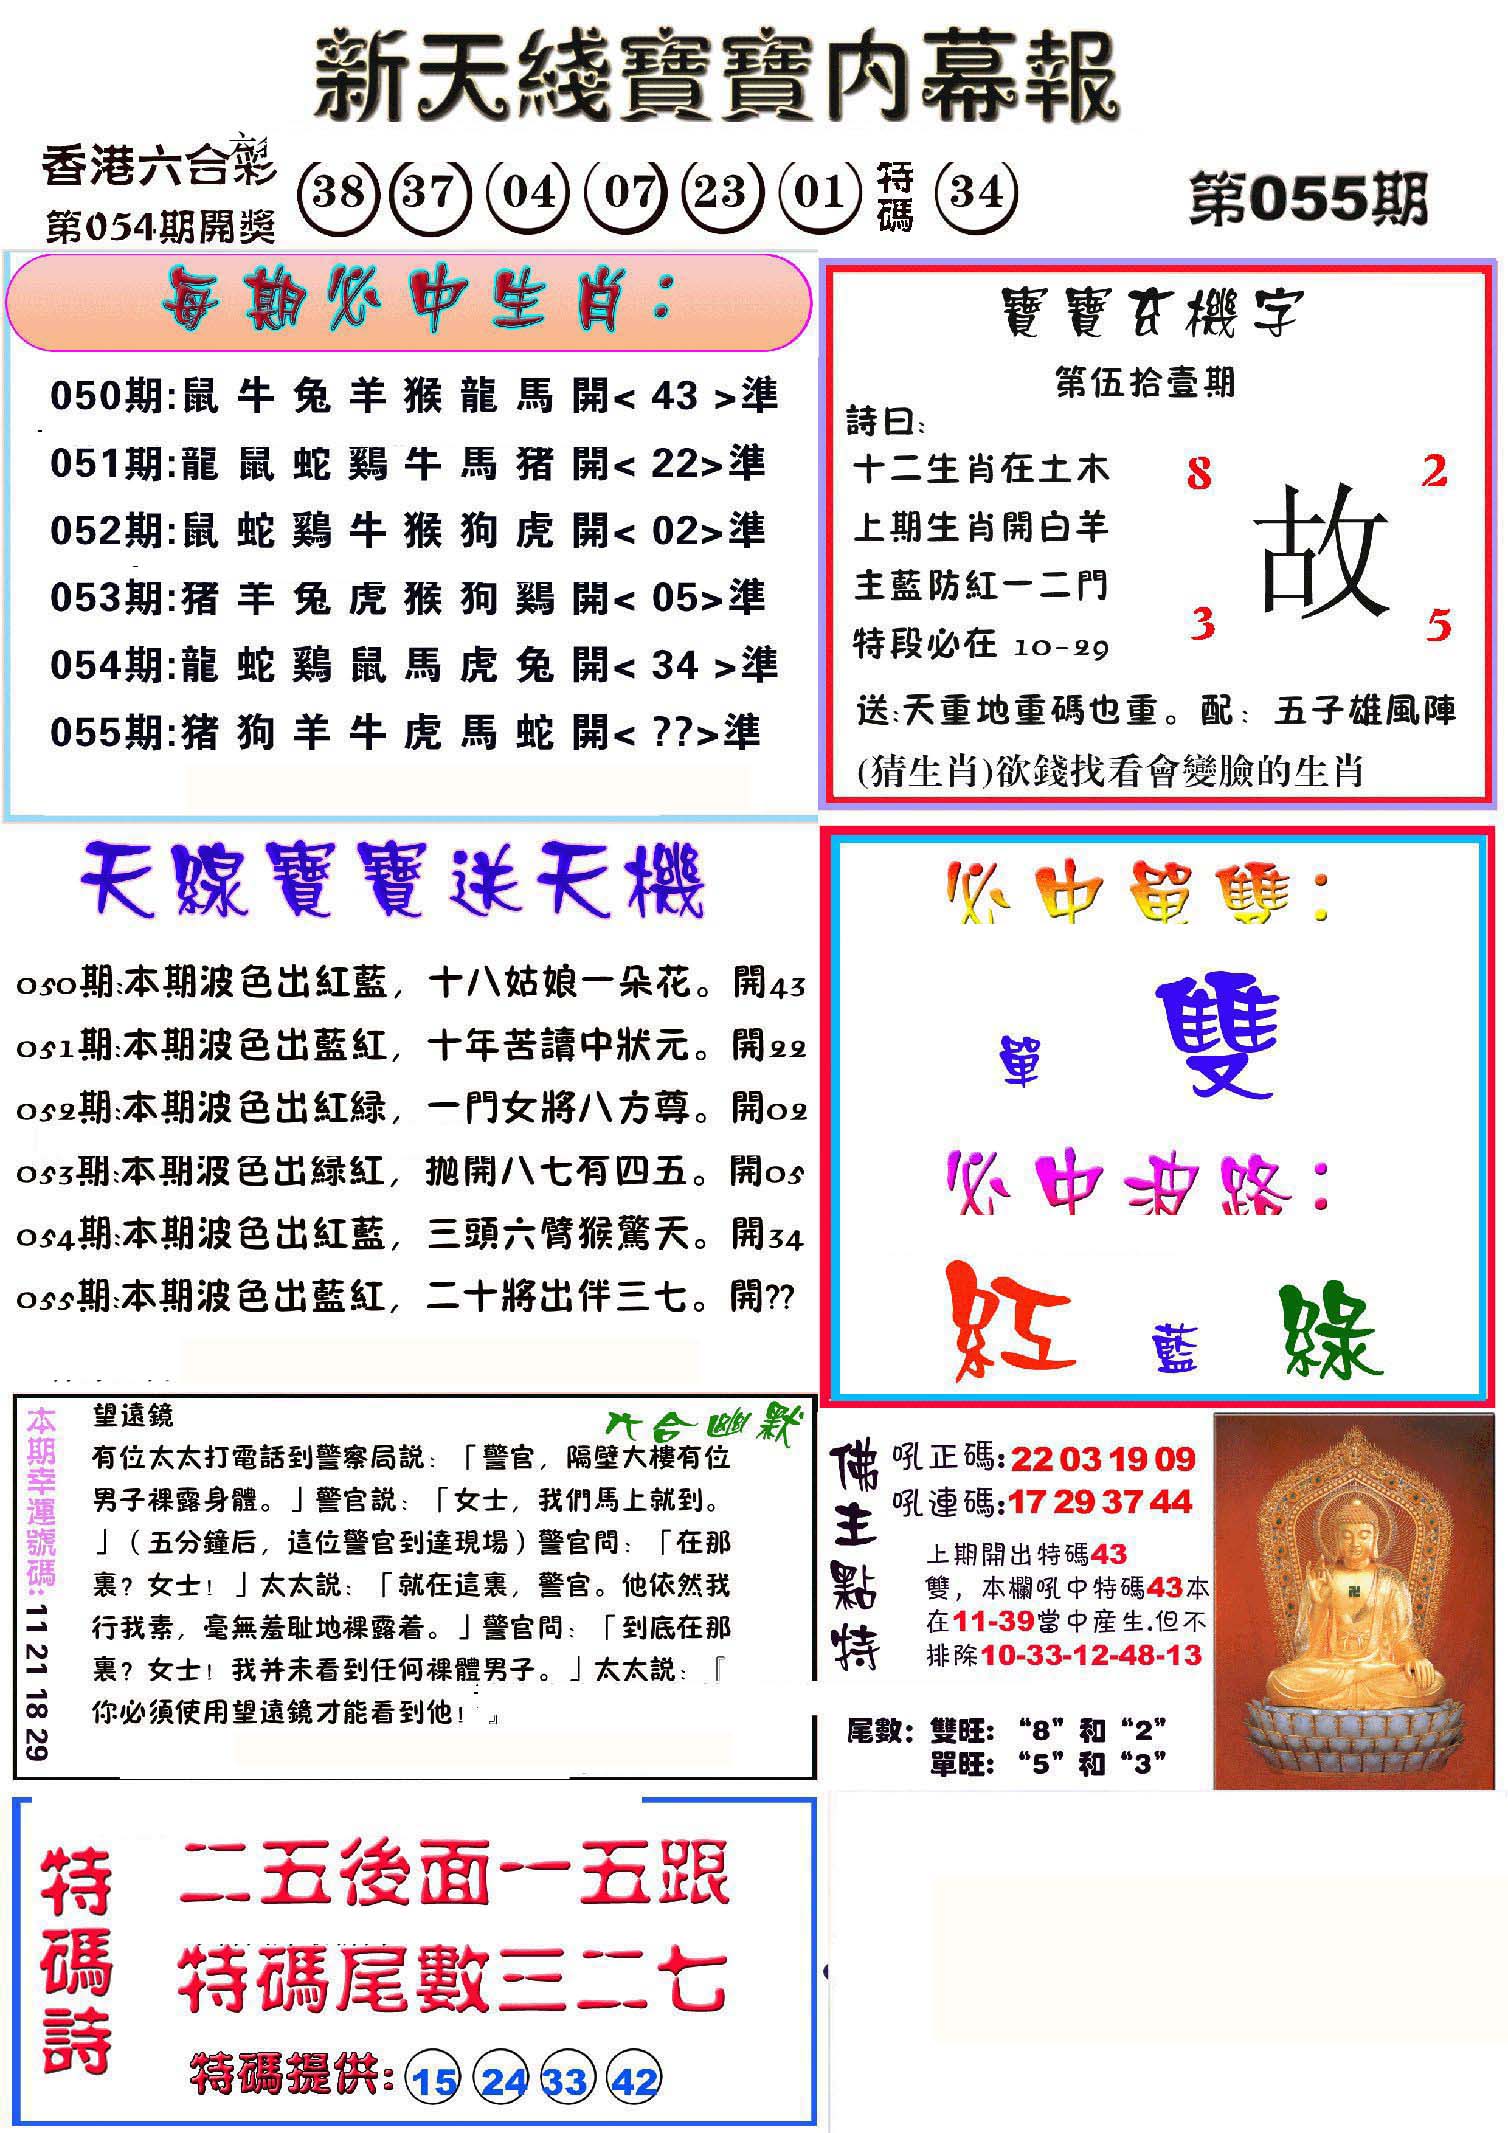 新天綫寶寶内幕報
香港六合彩
第054期開獎
38 37 04 07 23 01 特碼 34
第055期
每期必中生肖：
050期:鼠牛兔羊猴龍馬開< 43 >準
051期:龍鼠蛇鷄牛馬猪開< 22>準
052期:鼠蛇鷄牛猴狗虎開< 02>準
053期:猪羊兔虎猴狗鷄開< 05>準
054期:龍蛇鷄鼠馬虎兔開< 34 >準
055期:猪狗羊牛虎馬蛇開< ??>準
寶寶玄機字
第伍拾壹期
詩曰:
十二生肖在土木
上期生肖開白羊
主藍防紅一二門
特段必在 10-29
8 2
故
3 5
送:天重地重碼也重。配：五子雄風陣
(猜生肖)欲錢找看會變臉的生肖
天線寶寶送天機
050期:本期波色出紅藍，十八姑娘一朵花。開43
051期:本期波色出藍紅，十年苦讀中狀元。開22
052期:本期波色出紅緑，一門女將八方尊。開02
053期:本期波色出緑紅，拋開八七有四五。開05
054期:本期波色出紅藍，三頭六臂猴驚天。開34
055期:本期波色出藍紅，二十將出伴三七。開??
必中單雙：
單 雙
必中波路：
紅 藍 綠
本期幸運號碼:11 21 18 29
六合幽默
望遠鏡
有位太太打電話到警察局説：「警官，隔壁大樓有位
男子裸露身體。」警官説：「女士，我們馬上就到。
」（五分鐘后，這位警官到達現場）警官問：「在那
裏？女士！」太太説：「就在這裏，警官。他依然我
行我素，毫無羞耻地裸露着。」警官問：「到底在那
裏？女士！我并未看到任何裸體男子。」太太説：『
你必須使用望遠鏡才能看到他！』
佛主點特
吼正碼:22 03 19 09
吼連碼:17 29 37 44
上期開出特碼43
雙，本欄吼中特碼43本
在11-39當中産生.但不
排除10-33-12-48-13
尾數：雙旺：“8”和“2”
單旺：“5”和“3”
特碼詩
二五後面一五跟
特碼尾數三二七
特碼提供: 15 24 33 42